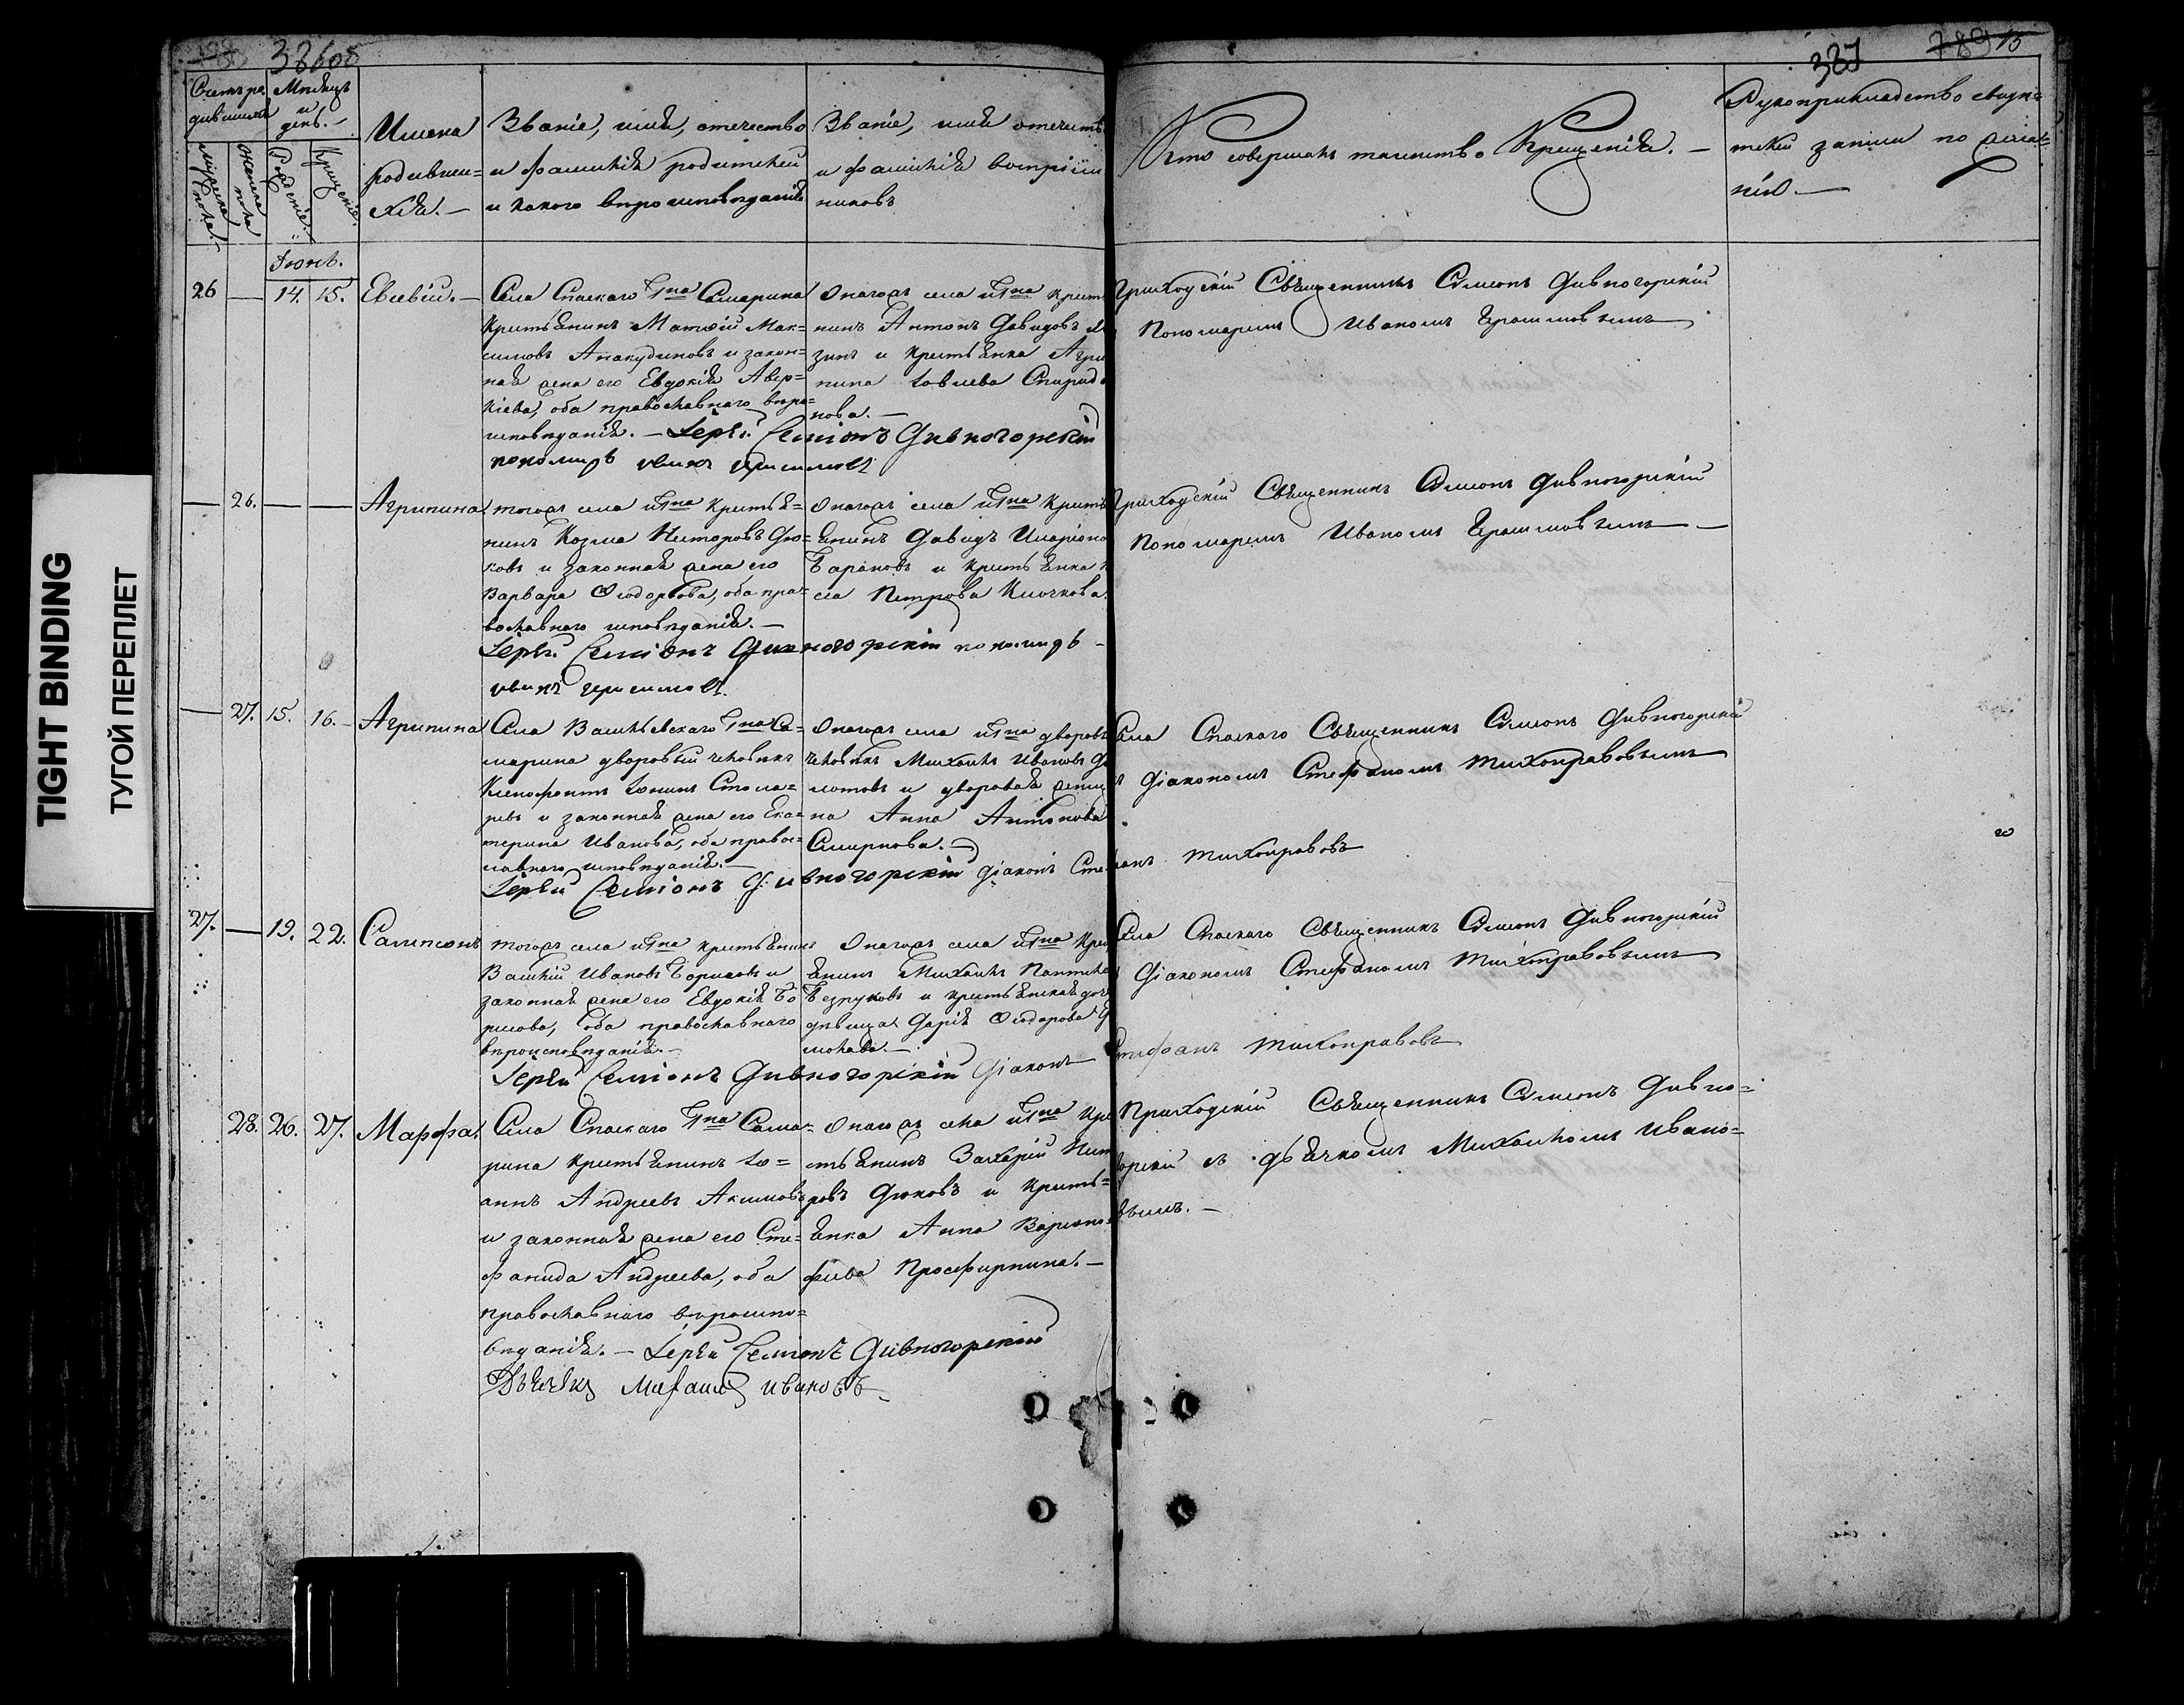 TIGHT BINDING
ТУГОЙ ПЕРЕПЛЕТ
387
789 15
Счетъ ро-
дившихся
Мѣсяцъ
и
день.
мужеска
пола
женска
пола
Рожденіе.
Крещеніе.
Имена
родивши=
хся.
Званіе, имя, отечество
и фамилія родителей
и какого вѣроисповѣданія
Званіе, имя отечеств
и фамилія воспріем
никовъ
Кто совершалъ таинство Крещенія.
Рукоприкладство свидѣ=
телей записи по жела=
нію
Іюнь.
26 — 14. 15. Евсевій. —
Села Спаскаго Гна Самарина
крестьянинъ Матѳій Мак=
симовъ Анкудиновъ и закон=
ная жена его Евдокія Авер=
кіева, оба православнаго вѣро=
исповѣданія. — Іерей Семіонъ Дивногорскій
пономарь Иванъ
Онагожъ села и Гна крест
нинъ Антонъ Давидовъ
зинъ и крестьянка Агри
пина Іовлева Спиридо
нова. —
Приходскій Священникъ Симеонъ Дивногорскій
Пономаремъ Иваномъ
— 26. — — Агрипина
тогожъ села и Гна крестья=
нинъ Козма Несторовъ Дю=
ковъ и законная жена его
Варвара Ѳеодорова, оба пра=
вославнаго исповѣданія. —
Іерей Семіонъ Дивногорскій пономарь
Иванъ
Онагожъ села и Гна крест
янинъ Давидъ Иларіоно
Барановъ и крестьянка
Петрова Клочкова.
Приходскій Священникъ Симеонъ Дивногорскій
Пономаремъ Иваномъ
— 27. 15. 16. Агрипина
Села Васильевскаго Гна Са=
марина дворовый человѣкъ
Ксенофонтъ Іонинъ Столя=
ревъ и законная жена его Ека=
терина Иванова, оба правос=
лавнаго исповѣданія. —
Іерей Семіонъ Дивногорскій діаконъ Стефанъ Тихонравовъ
Онагожъ села и Гна дворов
человѣкъ Михаилъ Ивановъ
мотовъ и дворовая
на Анна Антонова
Смирнова. —
Села Спаскаго Священникъ Симеонъ Дивногорскій
Діакономъ Стефаномъ Тихонравовымъ
27. — 19. 22. Сампсонъ
тогожъ села и Гна крестьянинъ
Василій Ивановъ Борисовъ и
законная жена его Евдокія Бо
рисова, оба православнаго
вѣроисповѣданія. —
Іерей Семіонъ Дивногорскій Діаконъ Стефанъ Тихонравовъ
Онагожъ села и Гна кре
янинъ Михаилъ Пантеле
Безруковъ и крестьянская доч
дѣвица Дарія Ѳеодорова
Села Спаскаго Священникъ Симеонъ Дивногорскій
Діакономъ Стефаномъ Тихонравовымъ
28. 26. 27. Марфа.
Села Спаскаго Гна Сама=
рина крестьянинъ Іо=
аннъ Андреевъ Акимовъ
и законная жена его Сте=
фанида Андреева, оба
православнаго вѣроиспо=
вѣданія. — Іерей Семіонъ Дивногорскій
Дьячекъ Михаилъ Ивановъ
Онагожъ села и Гна кре
стьянинъ Захарій Нест
ровъ Дюковъ и кресть=
янка Анна Варѳоло
Просфирнина. —
Приходскій Священникъ Симеонъ Дивно=
горскій съ дьячкомъ Михаиломъ Ивано=
вымъ. —